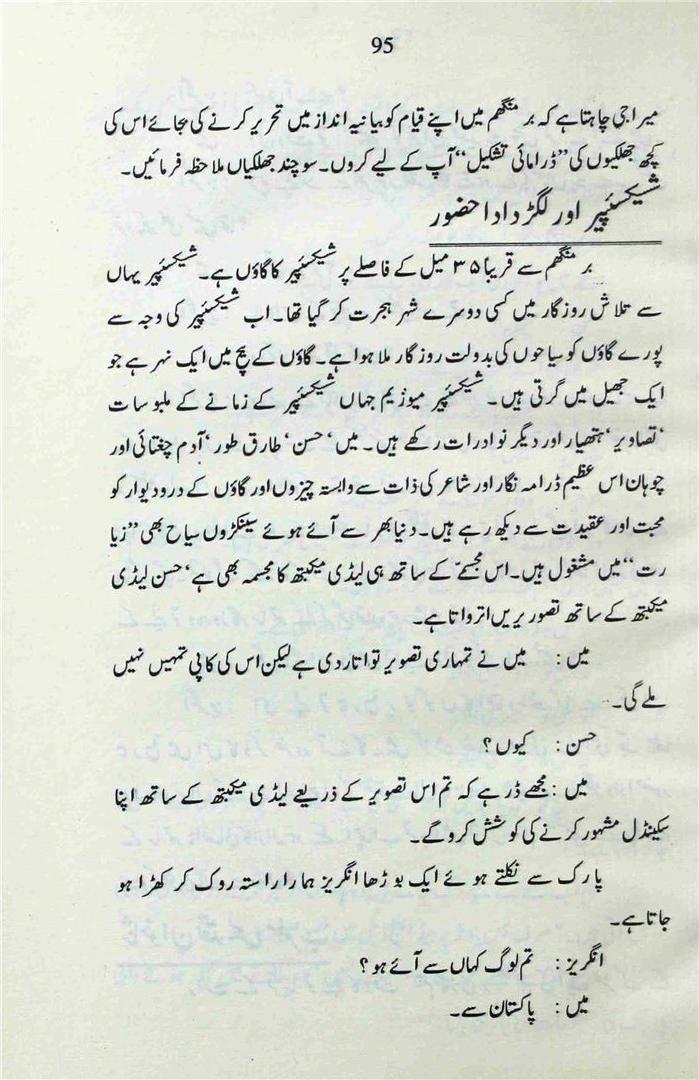 95
میرا جی چاہتا ہے کہ برمنگھم میں اپنے قیام کو بیانیہ انداز میں تحریر کرنے کی بجائے اس کی
کچھ جھلکیوں کی ’’ڈرامائی تشکیل‘‘ آپ کے لیے کروں۔ سو چند جھلکیاں ملاحظہ فرمائیں۔
شیکسپئیر اور لکڑ دادا حضور
برمنگھم سے قریبا ۳۵ میل کے فاصلے پر شیکسپئیر کا گاؤں ہے۔ شیکسپئیر یہاں
سے تلاش روزگار میں کسی دوسرے شہر ہجرت کر گیا تھا۔ اب شیکسپئیر کی وجہ سے
پورے گاؤں کو سیاحوں کی بدولت روزگار ملا ہوا ہے۔ گاؤں کے بیچ میں ایک نہر ہے جو
ایک جھیل میں گرتی ہیں۔ شیکسپئیر میوزیم جہاں شیکسپئیر کے زمانے کے ملبوسات
‘تصاویر‘ ہتھیار اور دیگر نوادرات رکھے ہیں۔ میں‘ حسن‘ طارق طور‘ آدم چغتائی اور
چوہان اس عظیم ڈرامہ نگار اور شاعر کی ذات سے وابستہ چیزوں اور گاؤں کے درودیوار کو
محبت اور عقیدت سے دیکھ رہے ہیں۔ دنیا بھر سے آئے ہوئے سینکڑوں سیاح بھی ’’زیا
رت‘‘ میں مشغول ہیں۔ اس مجسمے کے ساتھ ہی لیڈی میکبتھ کا مجسمہ بھی ہے‘ حسن لیڈی
میکبتھ کے ساتھ تصویریں اترواتا ہے۔
میں : میں نے تمہاری تصویر تو اتار دی ہے لیکن اس کی کاپی تمہیں نہیں
ملے گی۔
حسن : کیوں ؟
میں : مجھے ڈر ہے کہ تم اس تصویر کے ذریعے لیڈی میکبتھ کے ساتھ اپنا
سکینڈل مشہور کرنے کی کوشش کرو گے۔
پارک سے نکلتے ہوئے ایک بوڑھا انگریز ہمارا راستہ روک کر کھڑا ہو
جاتا ہے۔
انگریز : تم لوگ کہاں سے آئے ہو ؟
میں : پاکستان سے۔